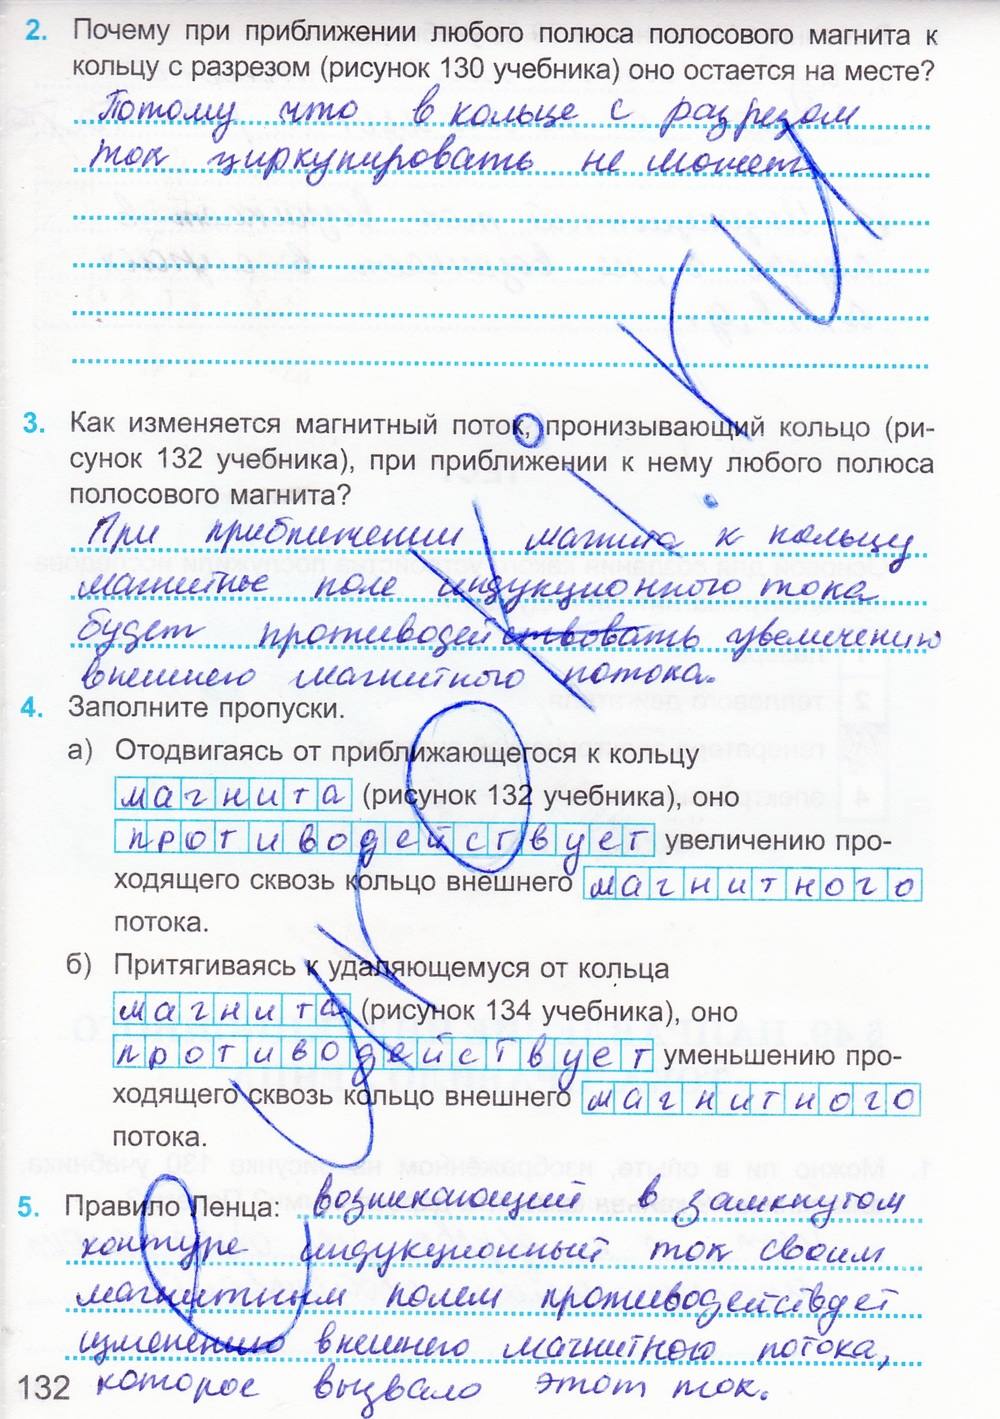 2. Почему при приближении любого полюса полосового магнита к
кольцу с разрезом (рисунок 130 учебника) оно остается на месте?
Потому что в кольце с разрезом
ток циркулировать не может
3. Как изменяется магнитный поток, пронизывающий кольцо (ри-
сунок 132 учебника), при приближении к нему любого полюса
полосового магнита?
При приближении магнита к кольцу
магнитное поле индукционного тока
будет противодействовать увеличению
внешнего магнитного потока.
4. Заполните пропуски.
а) Отодвигаясь от приближающегося к кольцу
магнита (рисунок 132 учебника), оно
противодействует увеличению про-
ходящего сквозь кольцо внешнего магнитного
потока.
б) Притягиваясь к удаляющемуся от кольца
магнита (рисунок 134 учебника), оно
противодействует уменьшению про-
ходящего сквозь кольцо внешнего магнитного
потока.
5. Правило Ленца: возникающий в замкнутом
контуре индукционный ток своим
магнитным полем противодействует
изменению внешнего магнитного потока,
132 которое вызвало этот ток.